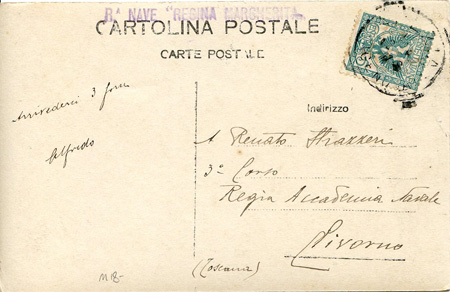 Rª NAVE "REGINA MARGHERITA
CARTOLINA POSTALE
CARTE POSTALE
Arrivederci 3
Alfredo
Indirizzo
A Renato Strazzeri
3º Corso
Regia Accademia Navale
Livorno
(Toscana)
M 8-